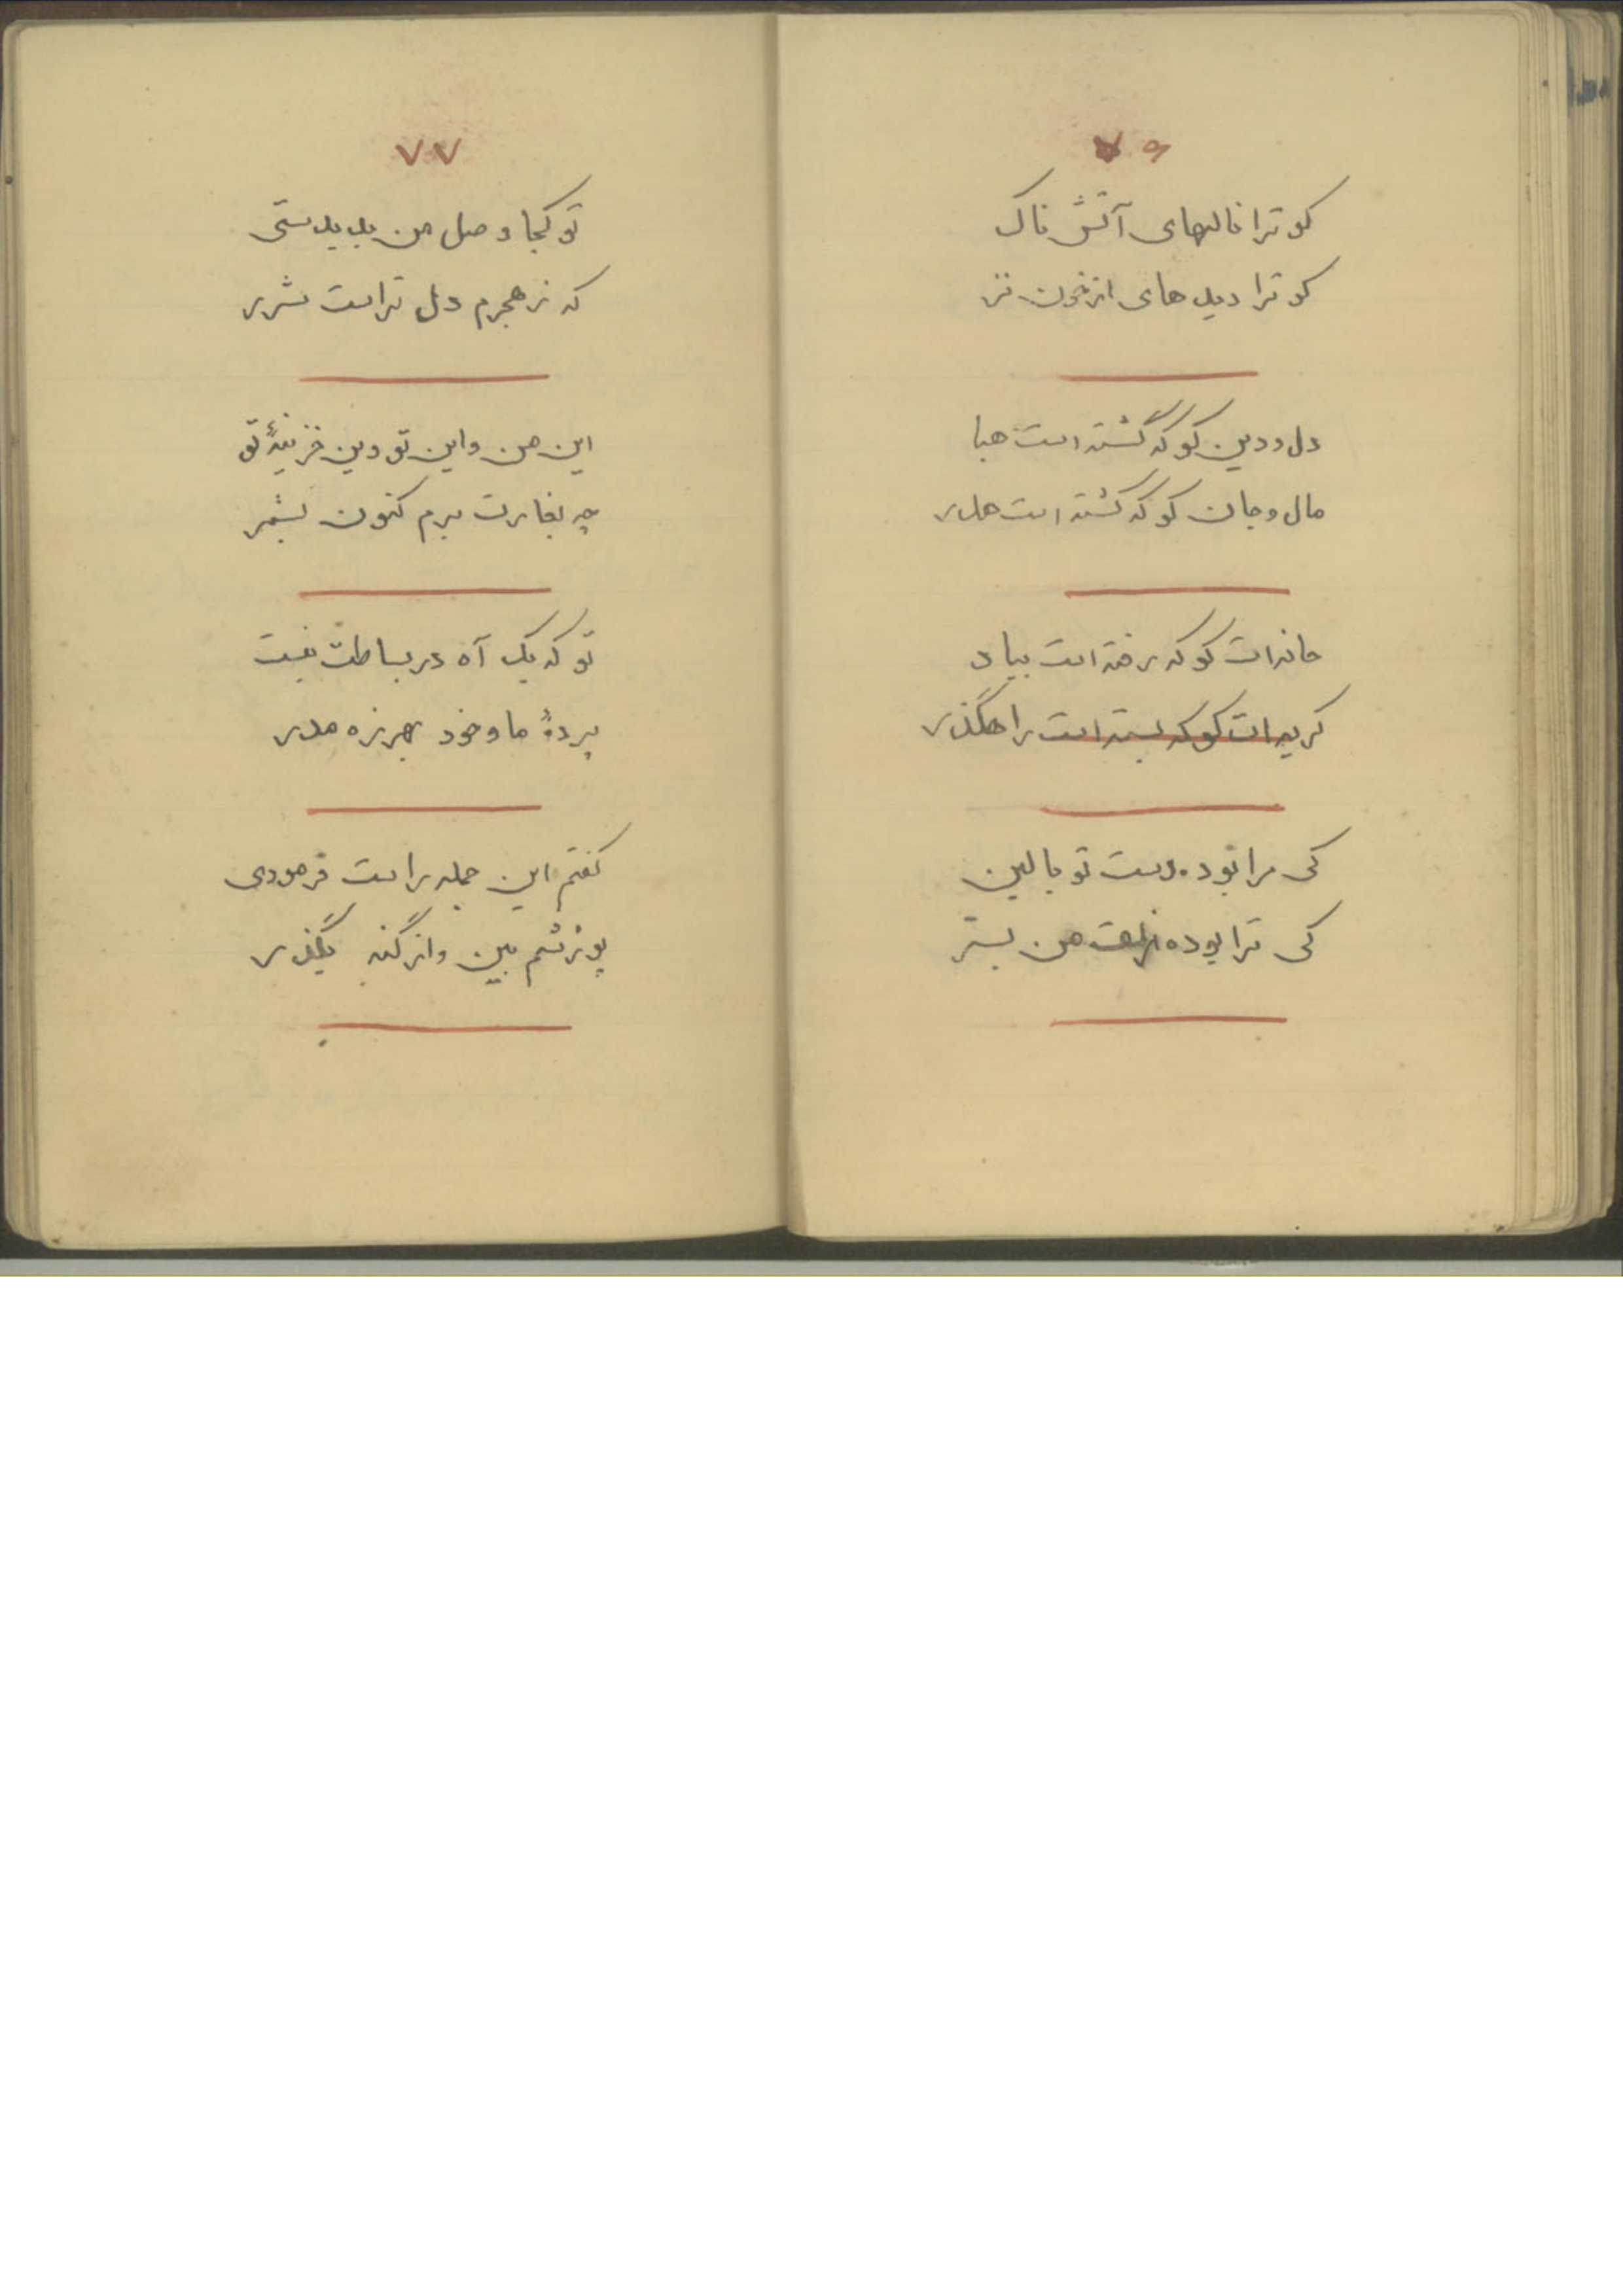 ۷۶
کو ترا نالهای آتش ناک
کو ترا دیده های از خون تر
دل و دین کو که گشته است هبا
مال و جان کو که گشته است هدر
خانه ات کو که رفته است بباد
گریه ات کو که بسته است راهگذر
کی مرا بوده دست تو بالین
کی ترا بوده زلف من بستر
۷۷
تو کجا وصل من بدیدستی
که ز هجرم دل تراست شرر
این من و این تو وین خزینهٔ تو
چه بغارت برم کنون بشمر
تو که یک آه در بساطت نیست
پردهٔ ما و خود بهرزه مدر
گفتم این جمله راست فرمودی
پوزشم بین و از گنه بگذر